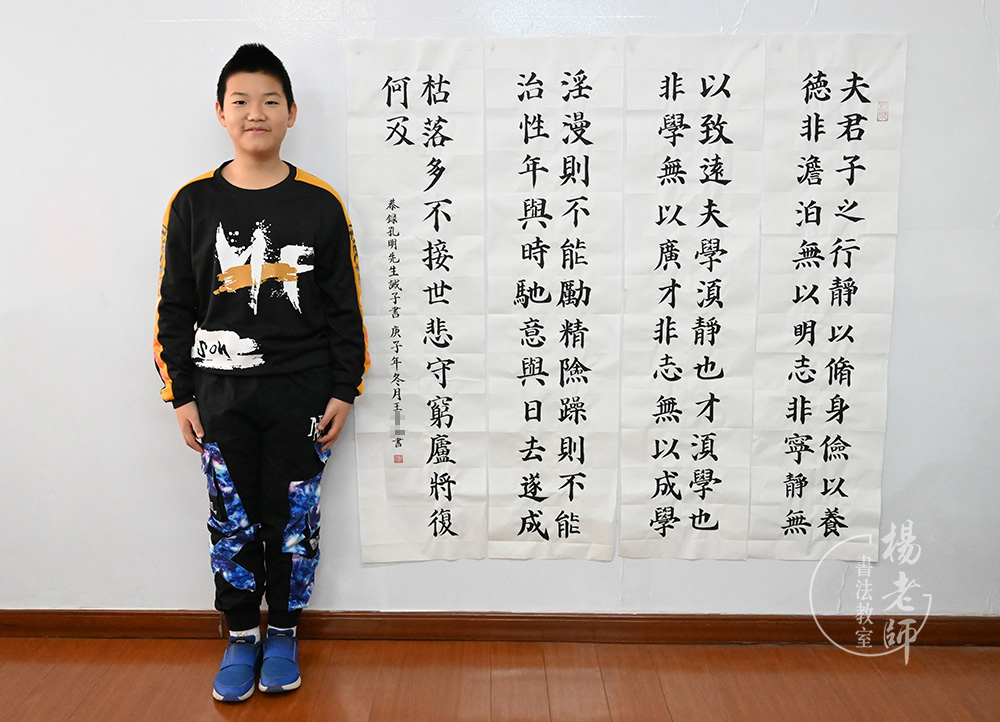 夫君子之行靜以脩身儉以養
德非澹泊無以明志非寧靜無
以致遠夫學湏靜也才湏學也
非學無以廣才非志無以成學
淫漫則不能勵精險躁則不能
治性年與時馳意與日去遂成
枯落多不接世悲守窮廬將復
何及
恭録孔明先生誡子書 庚子年冬月王 書
son
楊老師
書法教室